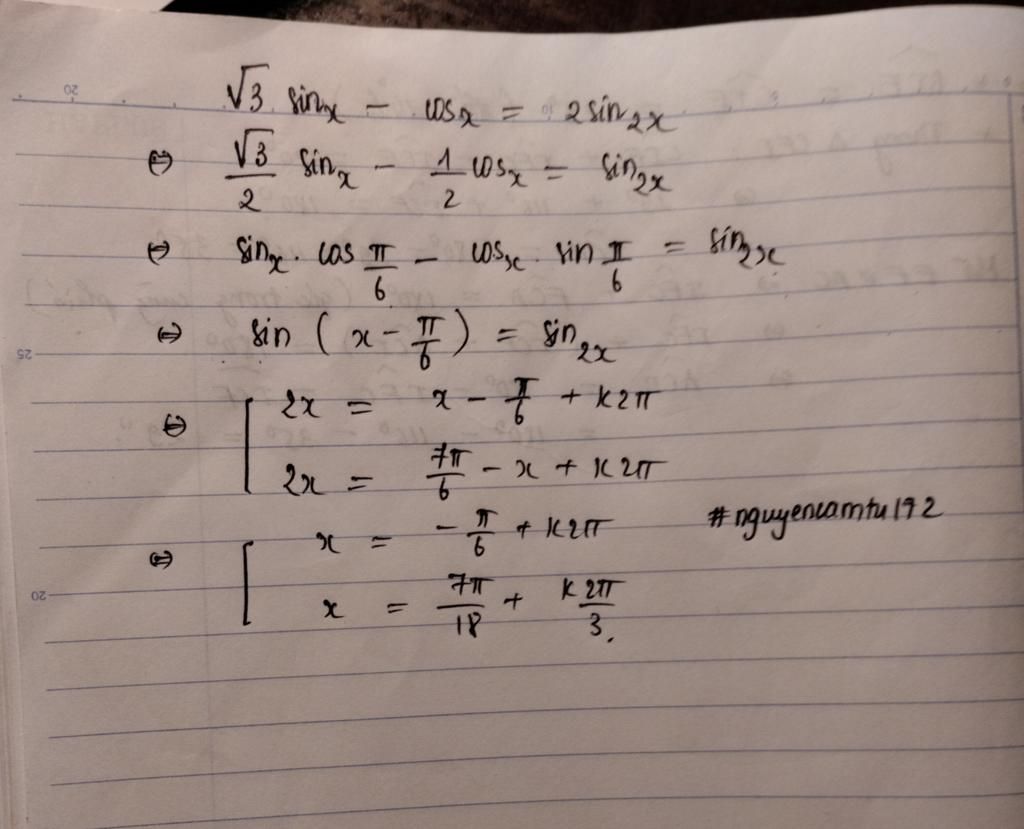 √3 sinx - cosx = 2sin2x
⇔ √3/2 sinx - 1/2 cosx = sin2x
⇔ sinx. cos π/6 - cosx. sin π/6 = sin2x
⇔ sin (x - π/6) = sin2x
⇔ [ 2x = x - π/6 + k2π
2x = 7π/6 - x + k2π
⇔ [ x = -π/6 + k2π
#nguyencamtu192
x = 7π/18 + k2π/3.